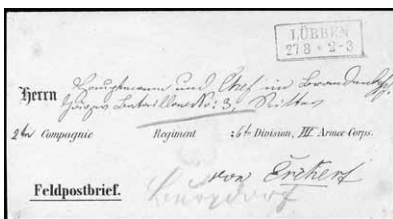 LÜBBEN
27 8 * 2-3
Herrn Hauptmann und Chef im Brandenbg.
Jäger Bataillon No: 3, Ritter
2te Compagnie Regiment 6te Division, III Armee-Corps.
von Erckert
Feldpostbrief.